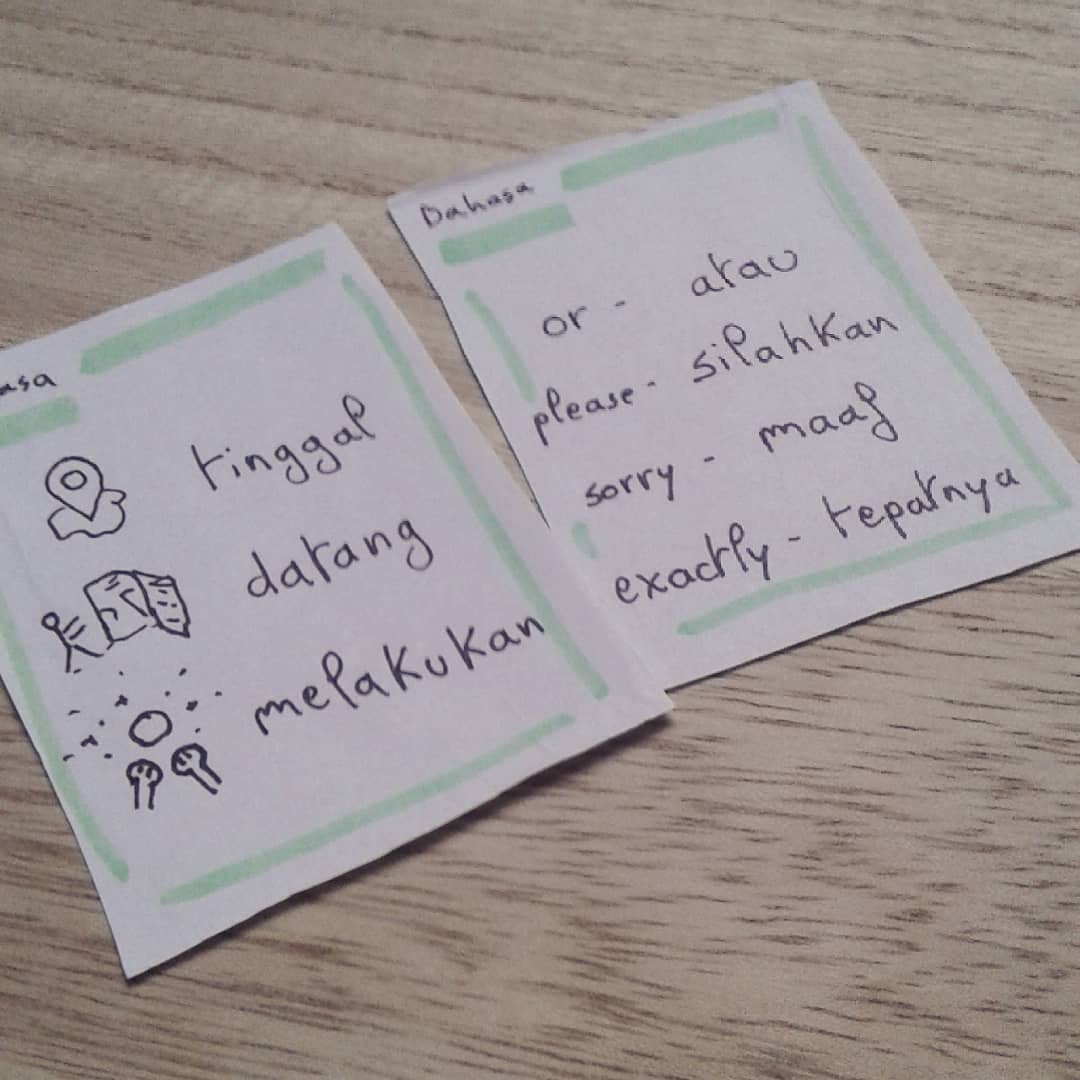 asa
tinggal
datang
melakukan
Bahasa
or - atau
please - silahkan
sorry - maaf
exactly - tepatnya